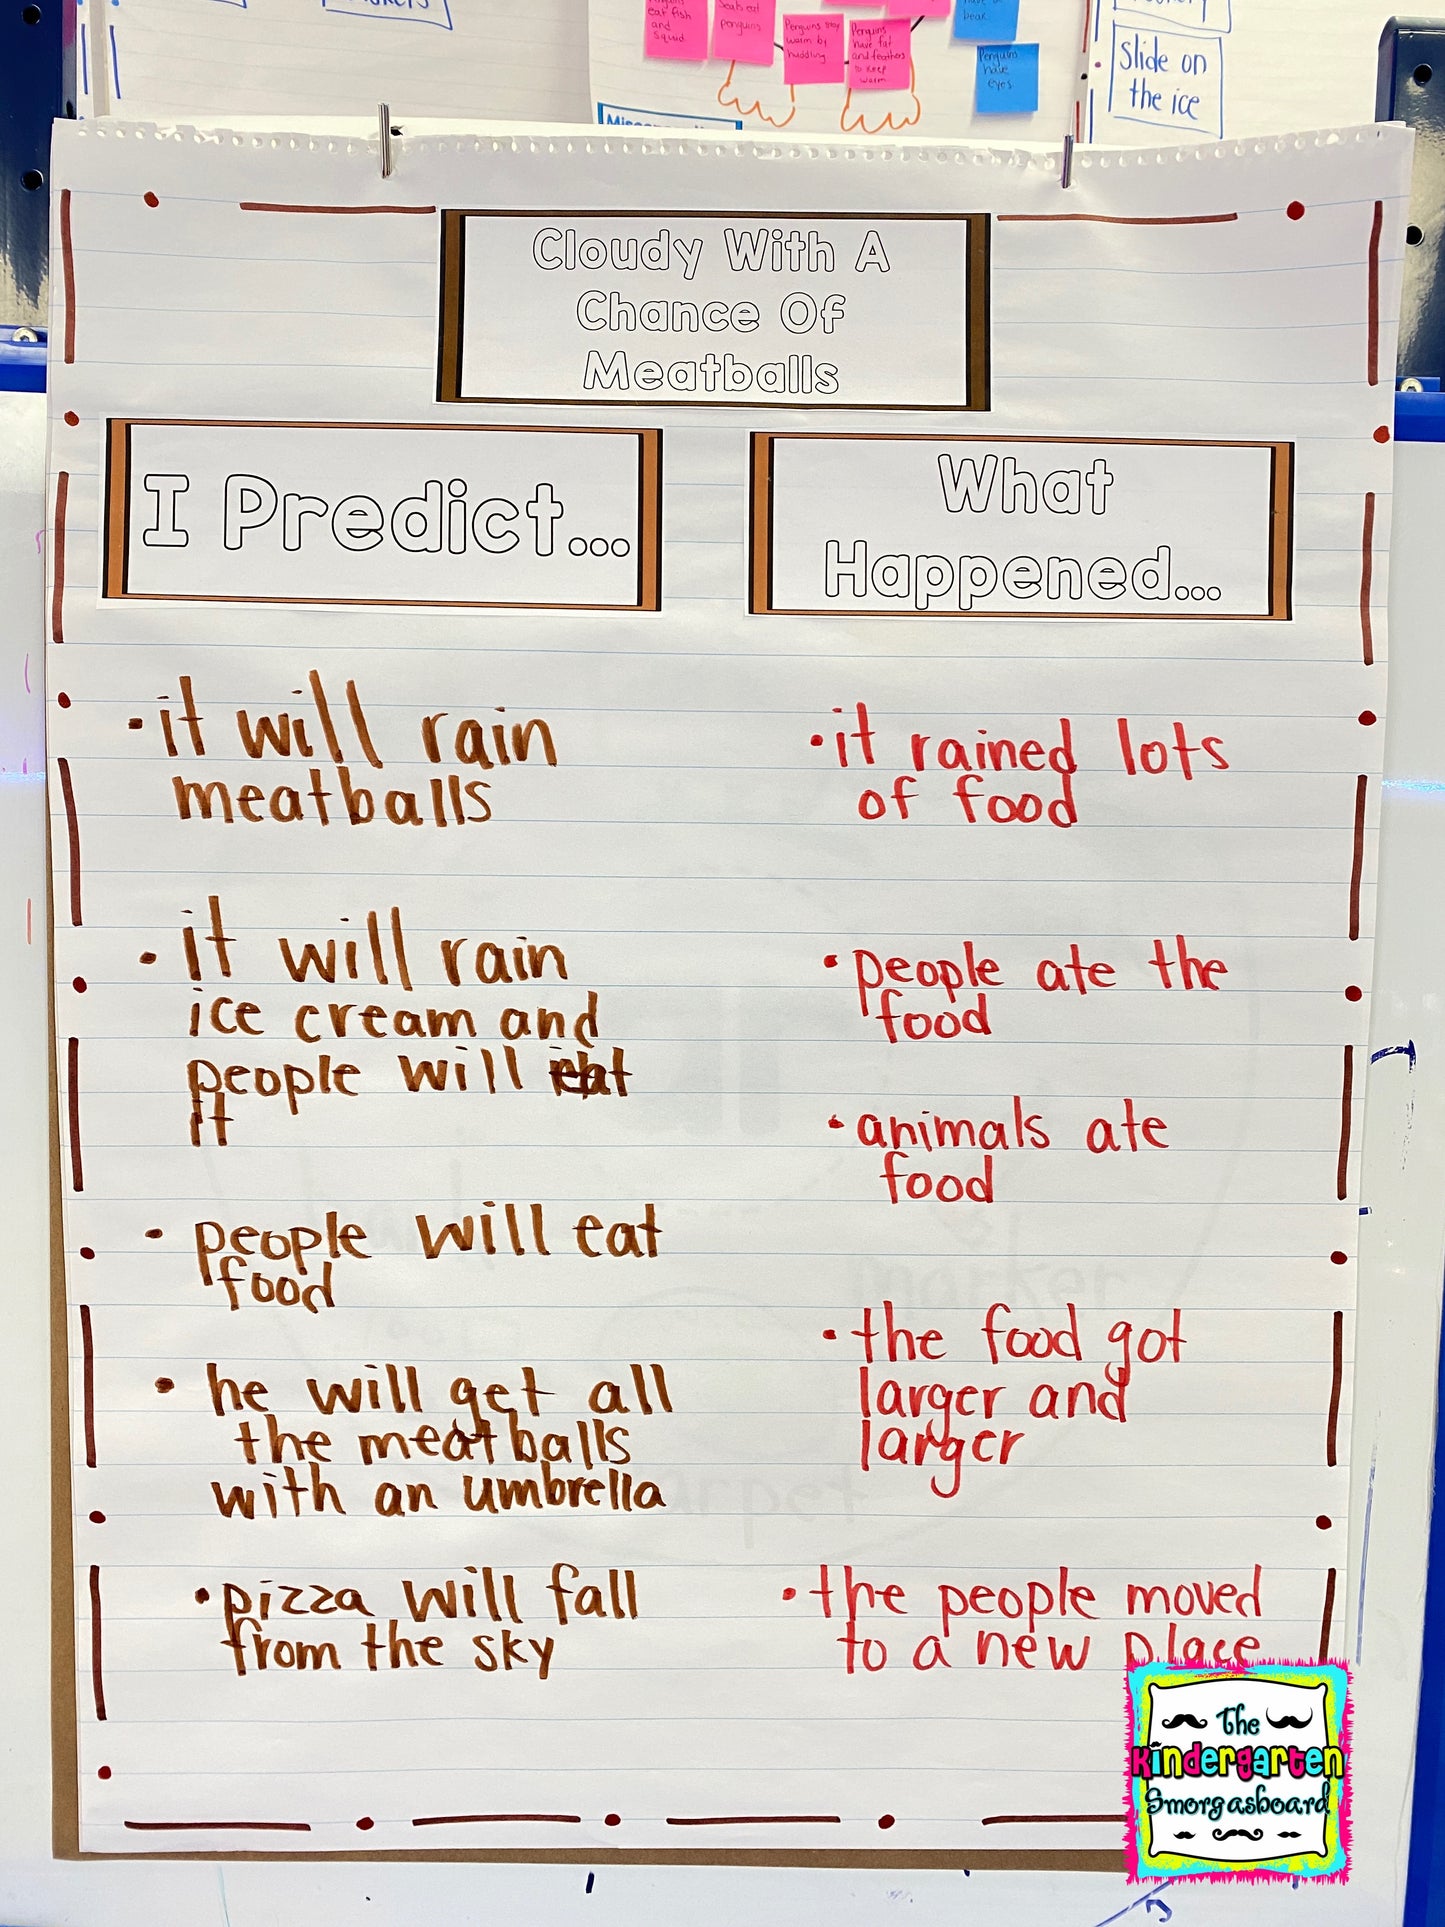 eat fish
and
squid
Seals eat
penguins
Penguins stay
warm by
huddling
Penguins
have fat
and feathers
to keep
warm
beak
Penguins
have
eyes
Slide on
the ice
Cloudy With A
Chance Of
Meatballs
I Predict...
•it will rain
meatballs
•it will rain
ice cream and
people will eat
it
•people will eat
food
•he will get all
the meatballs
with an umbrella
•pizza will fall
from the sky
What
Happened...
•it rained lots
of food
•people ate the
food
•animals ate
food
•the food got
larger and
larger
•the people moved
to a new place
The
Kindergarten
Smorgasboard